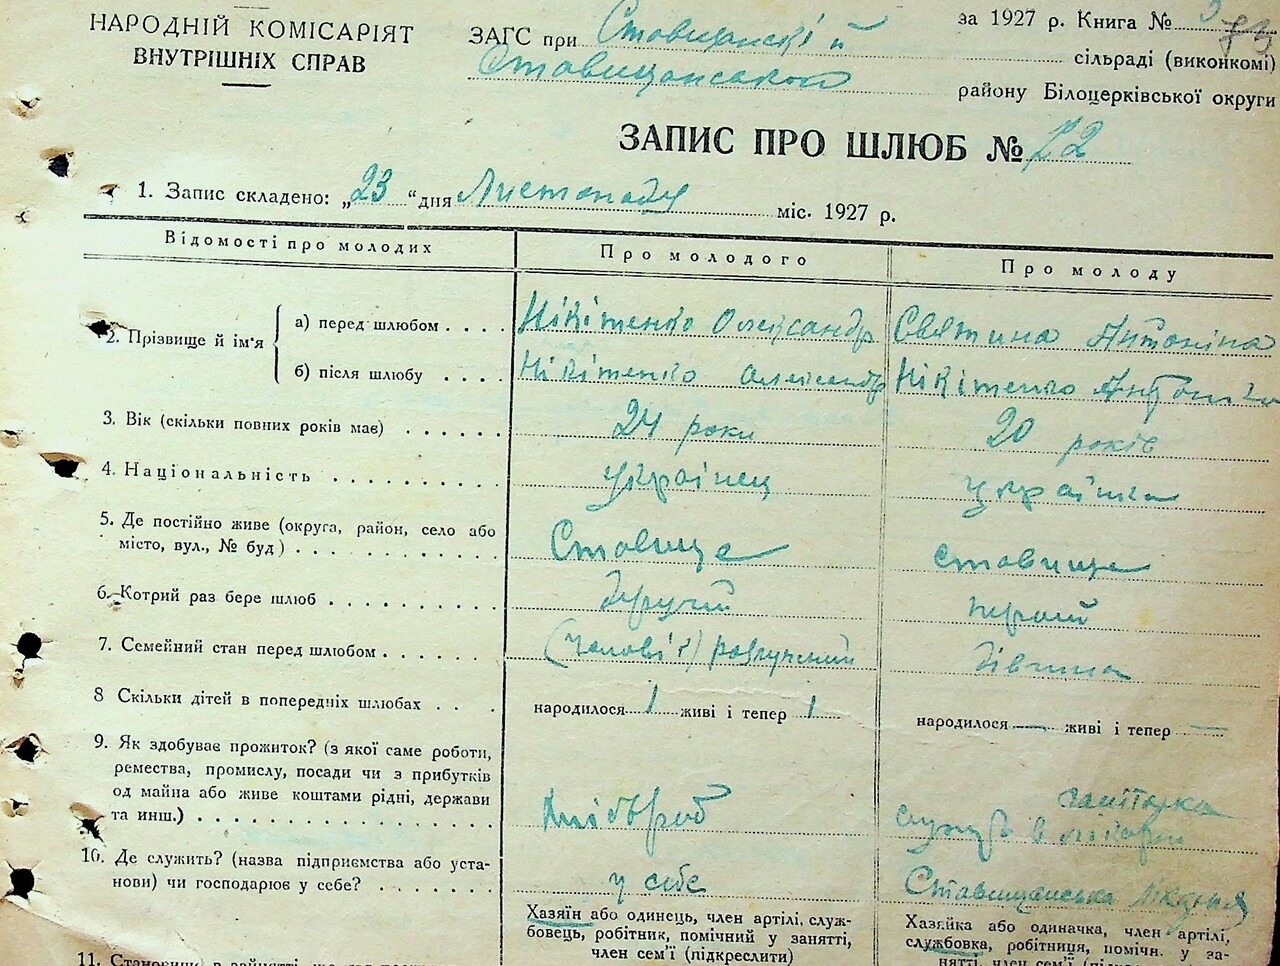 НАРОДНІЙ КОМІСАРІЯТ
ВНУТРІШНІХ СПРАВ
ЗАГС при Ставищанській
за 1927 р. Книга №
сільраді (виконкомі)
Ставищанського
району Білоцерківської округи
ЗАПИС ПРО ШЛЮБ № 22
1. Запис складено: „23" дня Листопаду міс. 1927 р.
Відомості про молодих
Про молодого
Про молоду
2. Прізвище й ім'я
а) перед шлюбом . . . .
Нікітенко Олександр
Святина Антоніна
б) після шлюбу . . . .
Нікітенко Олександр
Нікітенко Антоніна
3. Вік (скільки повних років має) . . . . . .
24 роки
20 років
4. Національність . . . . . . . . . .
українец
українка
5. Де постійно живе (округа, район, село або
місто, вул., № буд) . . . . . . . . . . .
Ставище
ставище
6. Котрий раз бере шлюб . . . . . . . . . .
другий
перший
7. Семейний стан перед шлюбом . . . . . . .
(чоловік) розлучений
дівчина
8 Скільки дітей в попередніх шлюбах . . . .
народилося 1 живі і тепер 1
народилося — живі і тепер —
9. Як здобуває прожиток? (з якої саме роботи,
ремества, промислу, посади чи з прибутків
од майна або живе коштами рідні, держави
та инш.) . . . . . . . . . . . . . . . .
хлібороб
санітарка
служить в
10. Де служить? (назва підприємства або уста-
нови) чи господарює у себе? . . . . . . .
у себе
Ставищанська лікарня
Хазяїн або одинець, член артілі, служ-
бовець, робітник, помічний у занятті,
член сем'ї (підкреслити)
Хазяйка або одиначка, член артілі,
службовка, робітниця, помічн. у за-
нятті, член сем'ї
11.